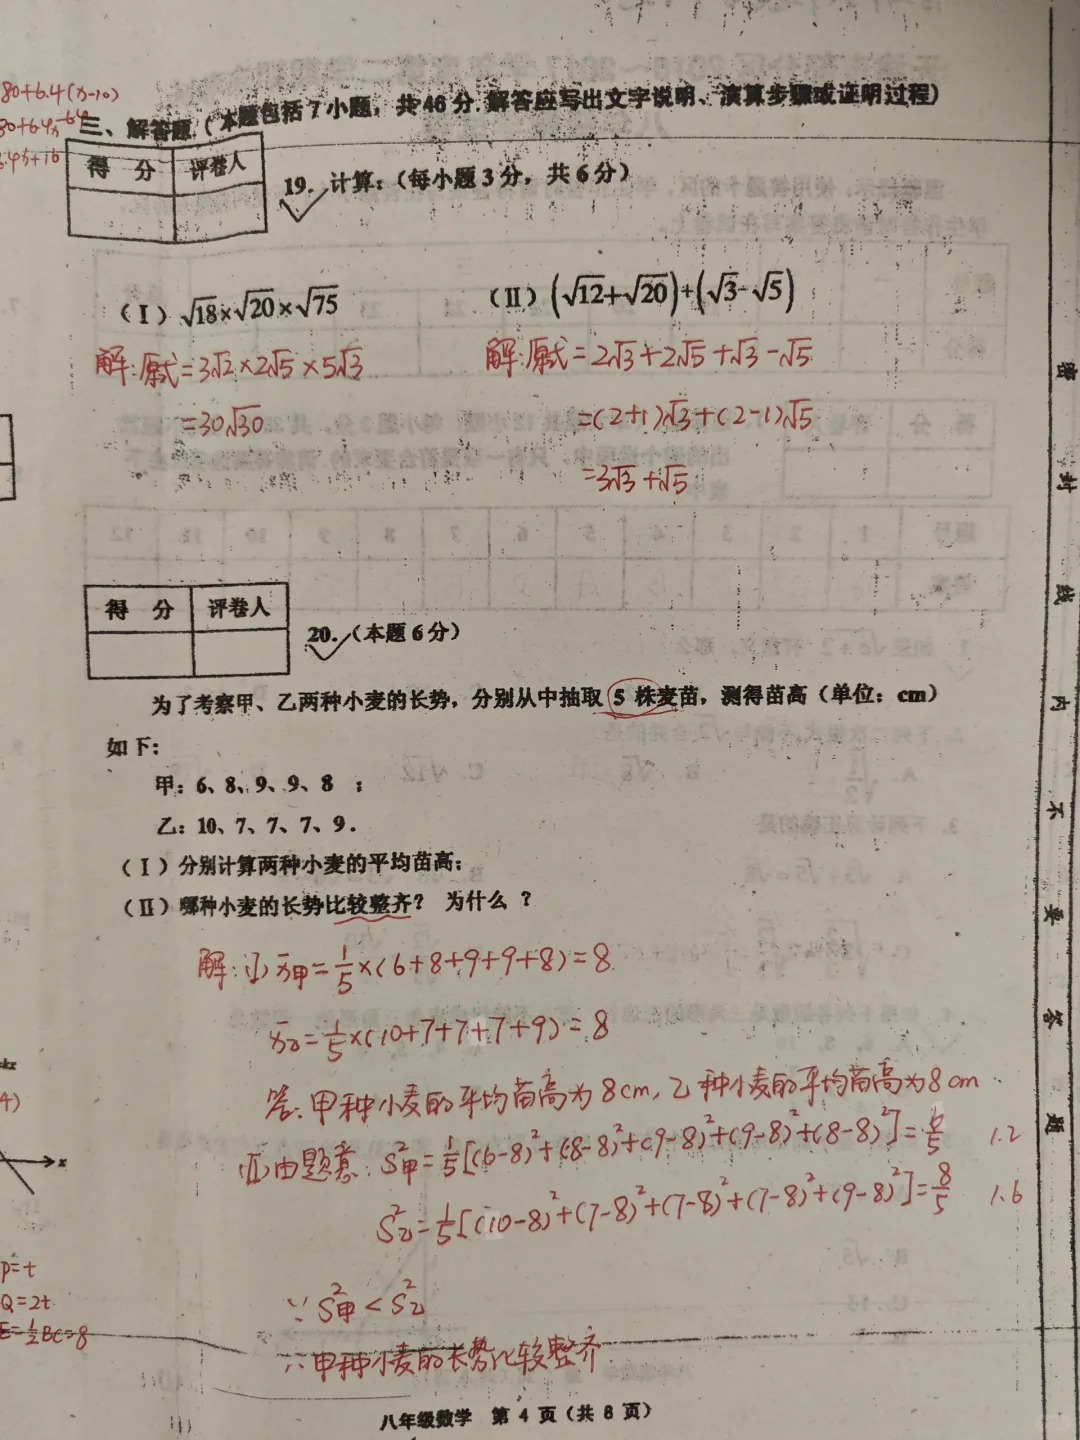 80+6.4(x-10)
80+6.4x-64
6.4x+16
三、解答题(本题包括7小题，共46分.解答应写出文字说明、演算步骤或证明过程)
得 分 评卷人
19. 计算：(每小题3分，共6分)
(Ⅰ) √18×√20×√75 (Ⅱ) (√12+√20)+(√3-√5)
解:原式=3√2×2√5×5√3 解:原式=2√3+2√5+√3-√5
=30√30 =(2+1)√3+(2-1)√5
=3√3+√5
得 分 评卷人
20.(本题6分)
为了考察甲、乙两种小麦的长势，分别从中抽取 5 株麦苗，测得苗高(单位：cm)
如下：
甲：6、8、9、9、8 ；
乙：10、7、7、7、9.
(Ⅰ)分别计算两种小麦的平均苗高；
(Ⅱ)哪种小麦的长势比较整齐？ 为什么 ？
解:(Ⅰ) x̄甲=1/5×(6+8+9+9+8)=8
x̄乙=1/5×(10+7+7+7+9)=8
答:甲种小麦的平均苗高为8cm,乙种小麦的平均苗高为8cm.
(Ⅱ)由题意:S²甲=1/5[(6-8)²+(8-8)²+(9-8)²+(9-8)²+(8-8)²]=6/5 1.2
S²乙=1/5[(10-8)²+(7-8)²+(7-8)²+(7-8)²+(9-8)²]=8/5 1.6
∵S²甲<S²乙
∴甲种小麦的长势比较整齐.
八年级数学 第 4 页(共 8 页)
密 封 线 内 不 要 答 题
4)
x
P=t
Q=2t
E=½BC=8